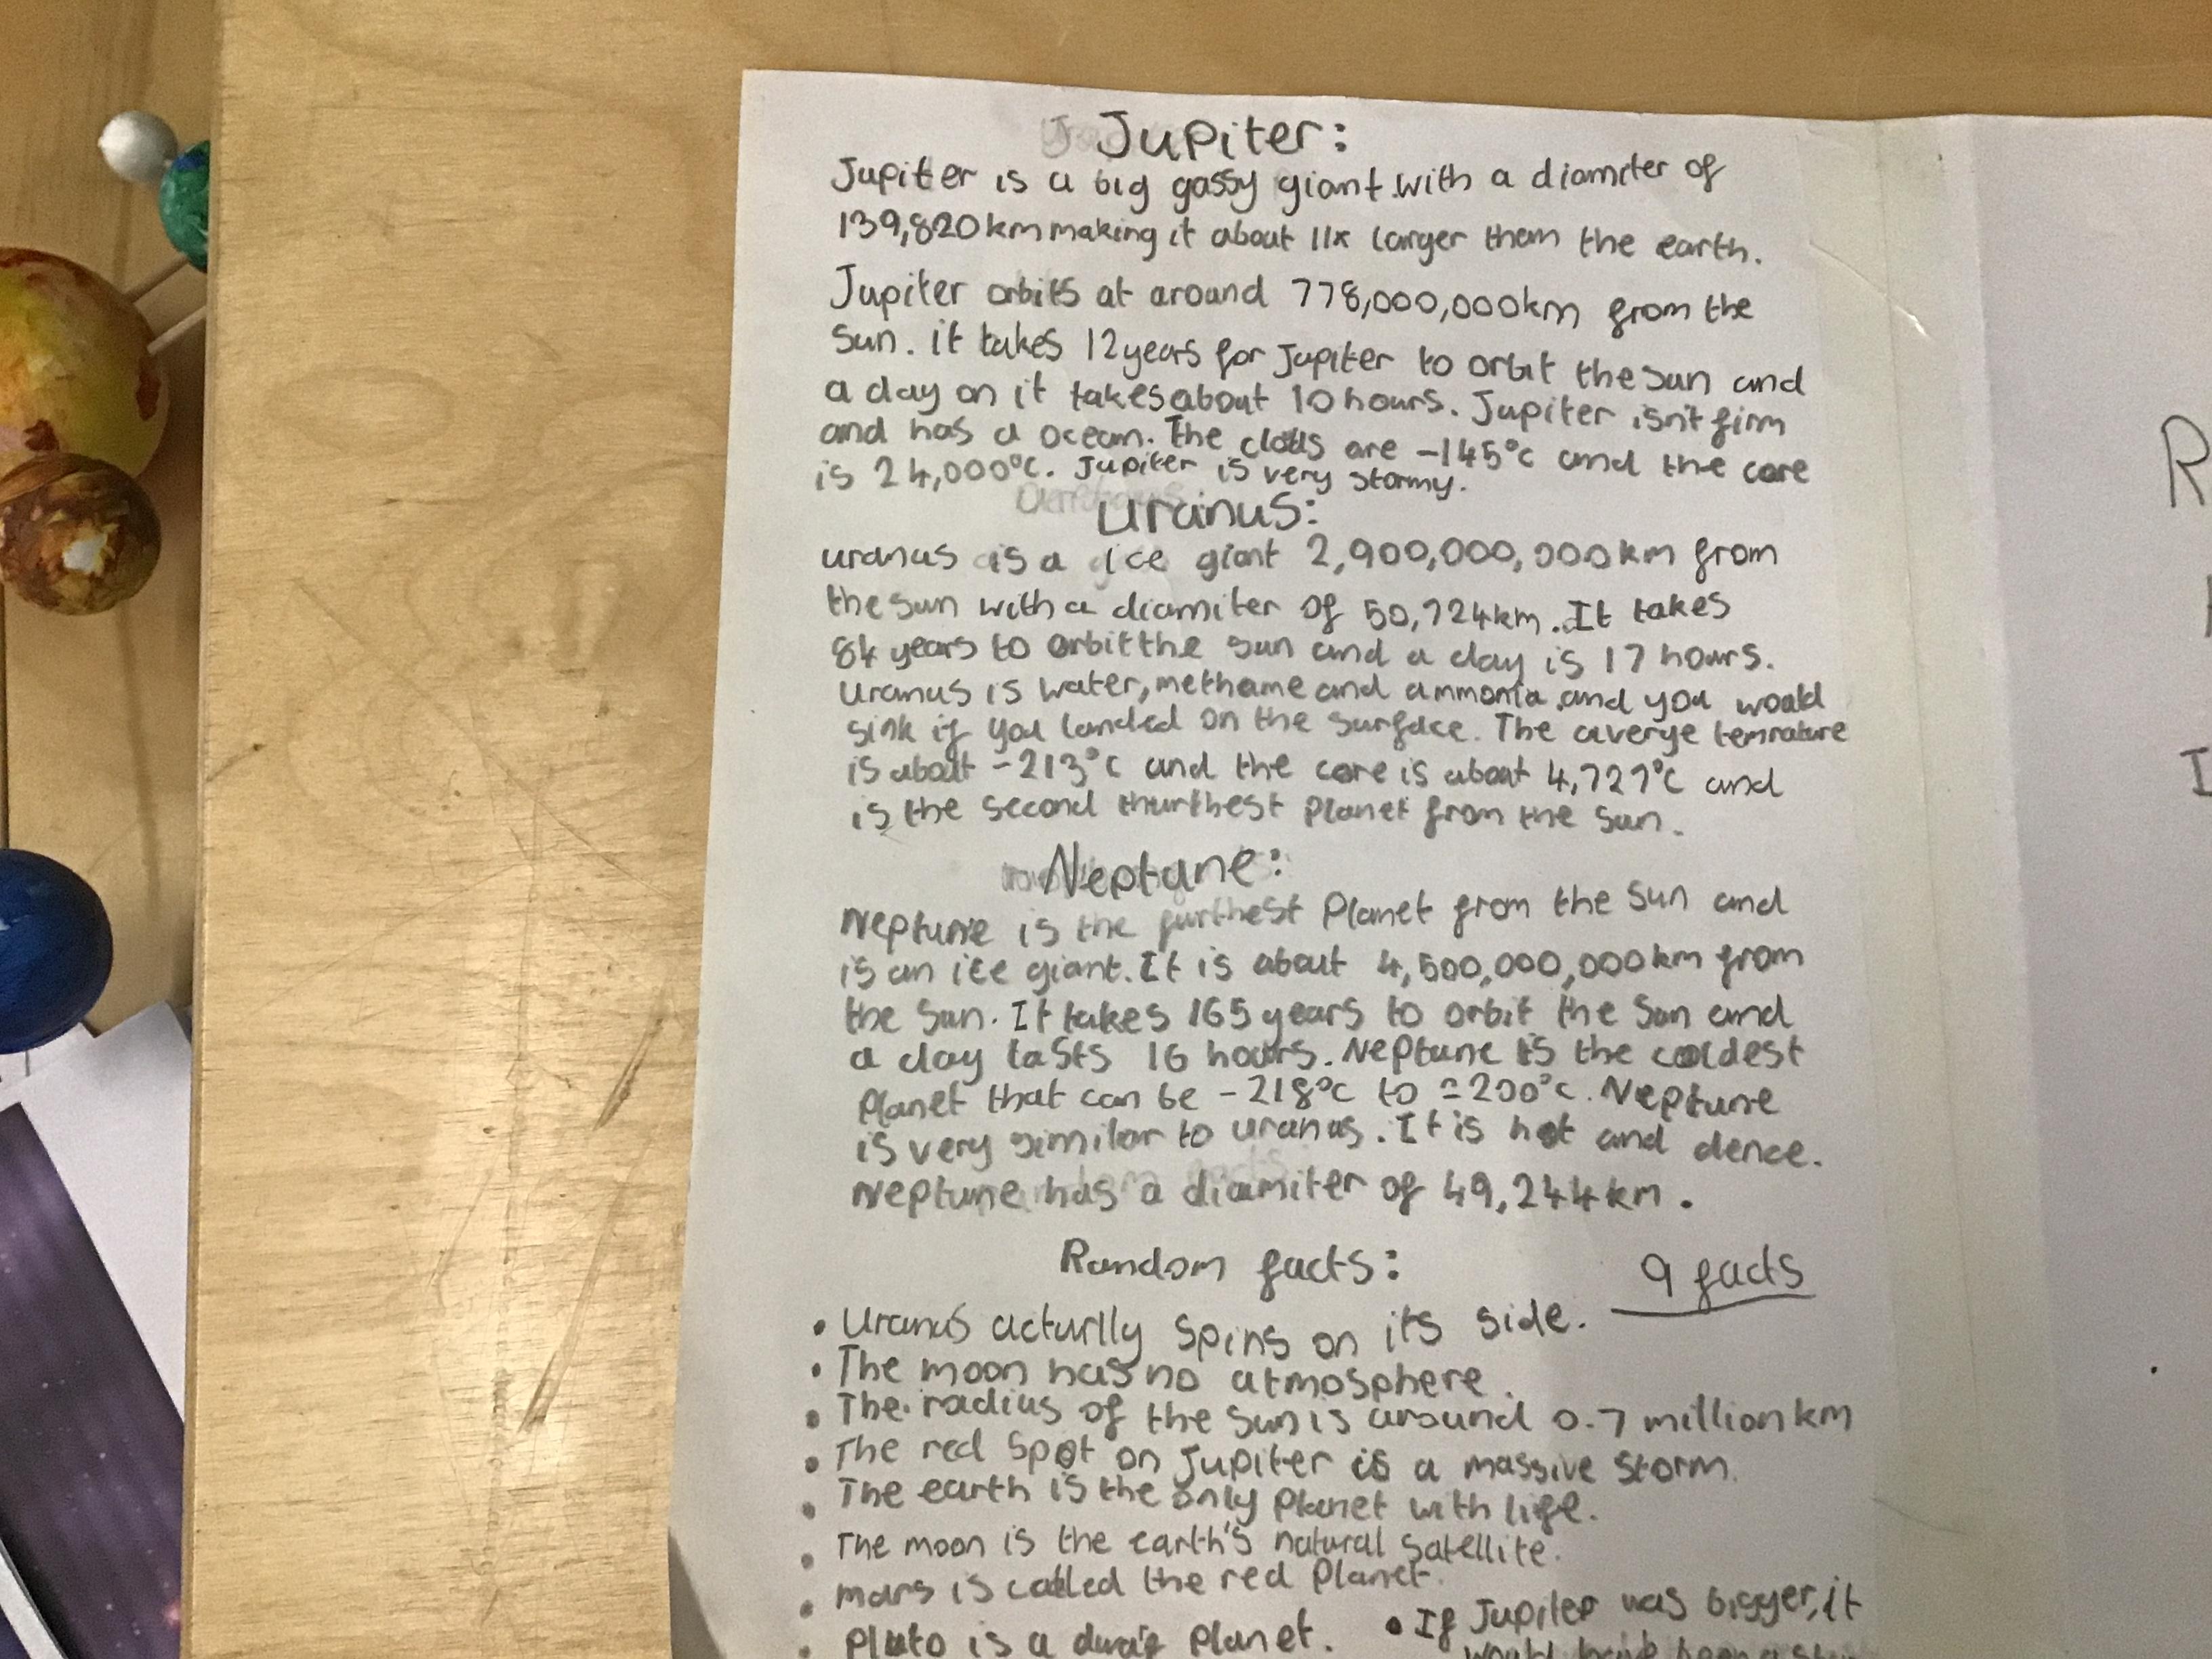 Jupiter:
Jupiter is a big gassy giant with a diamiter of
139,820km making it about 11x larger them the earth.
Jupiter orbits at around 778,000,000km from the
sun. it takes 12years for Jupiter to orbit the sun and
a day on it takes about 10 hours. Jupiter isn't firm
and has a ocean. The are -145°c and the core
is 24,000°c. Jupiter is very stormy.
Uranus:
uranus is a ice giant 2,900,000,000km from
the sun with a diamiter of 50,724km. It takes
84 years to orbit the sun and a day is 17 hours.
Uranus is water, methame and ammonia and you would
sink if you landed on the surface. The averge temrature
is about -213°c and the core is about 4,727°c and
is the second thurthest Planet from the sun.
Neptune:
Neptune is the furthest Planet from the sun and
is an ice giant. It is about 4,500,000,000km from
the sun. It takes 165 years to orbit the sun and
a day lasts 16 hours. Neptune is the coldest
Planet that can be -218°c to -200°c. Neptune
is very similar to uranus. It is hot and dence.
Neptune has a diamiter of 49,244km.
Random facts: 9 facts
• Uranus acturlly spins on its side.
• The moon has no atmosphere.
• The radius of the sun is around 0.7 million km
• The red spot on Jupiter is a massive storm.
• The earth is the only Planet with life.
• The moon is the earth's natural satellite.
• mars is called the red Planet.
• Pluto is a planet. • If Jupiter was bigger, it
would have been a
R
I